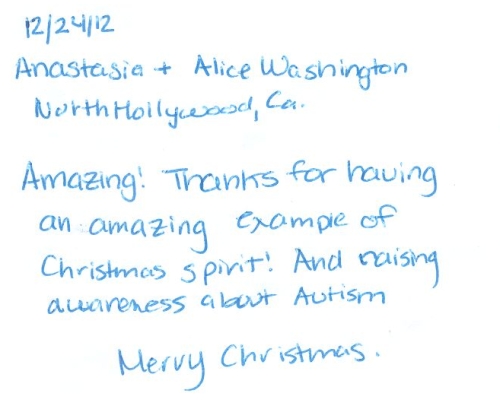 12/24/12
Anastasia + Alice Washington
North Hollywood, Ca.
Amazing! Thanks for having
an amazing example of
Christmas spirit! And raising
awareness about Autism
Merry Christmas.